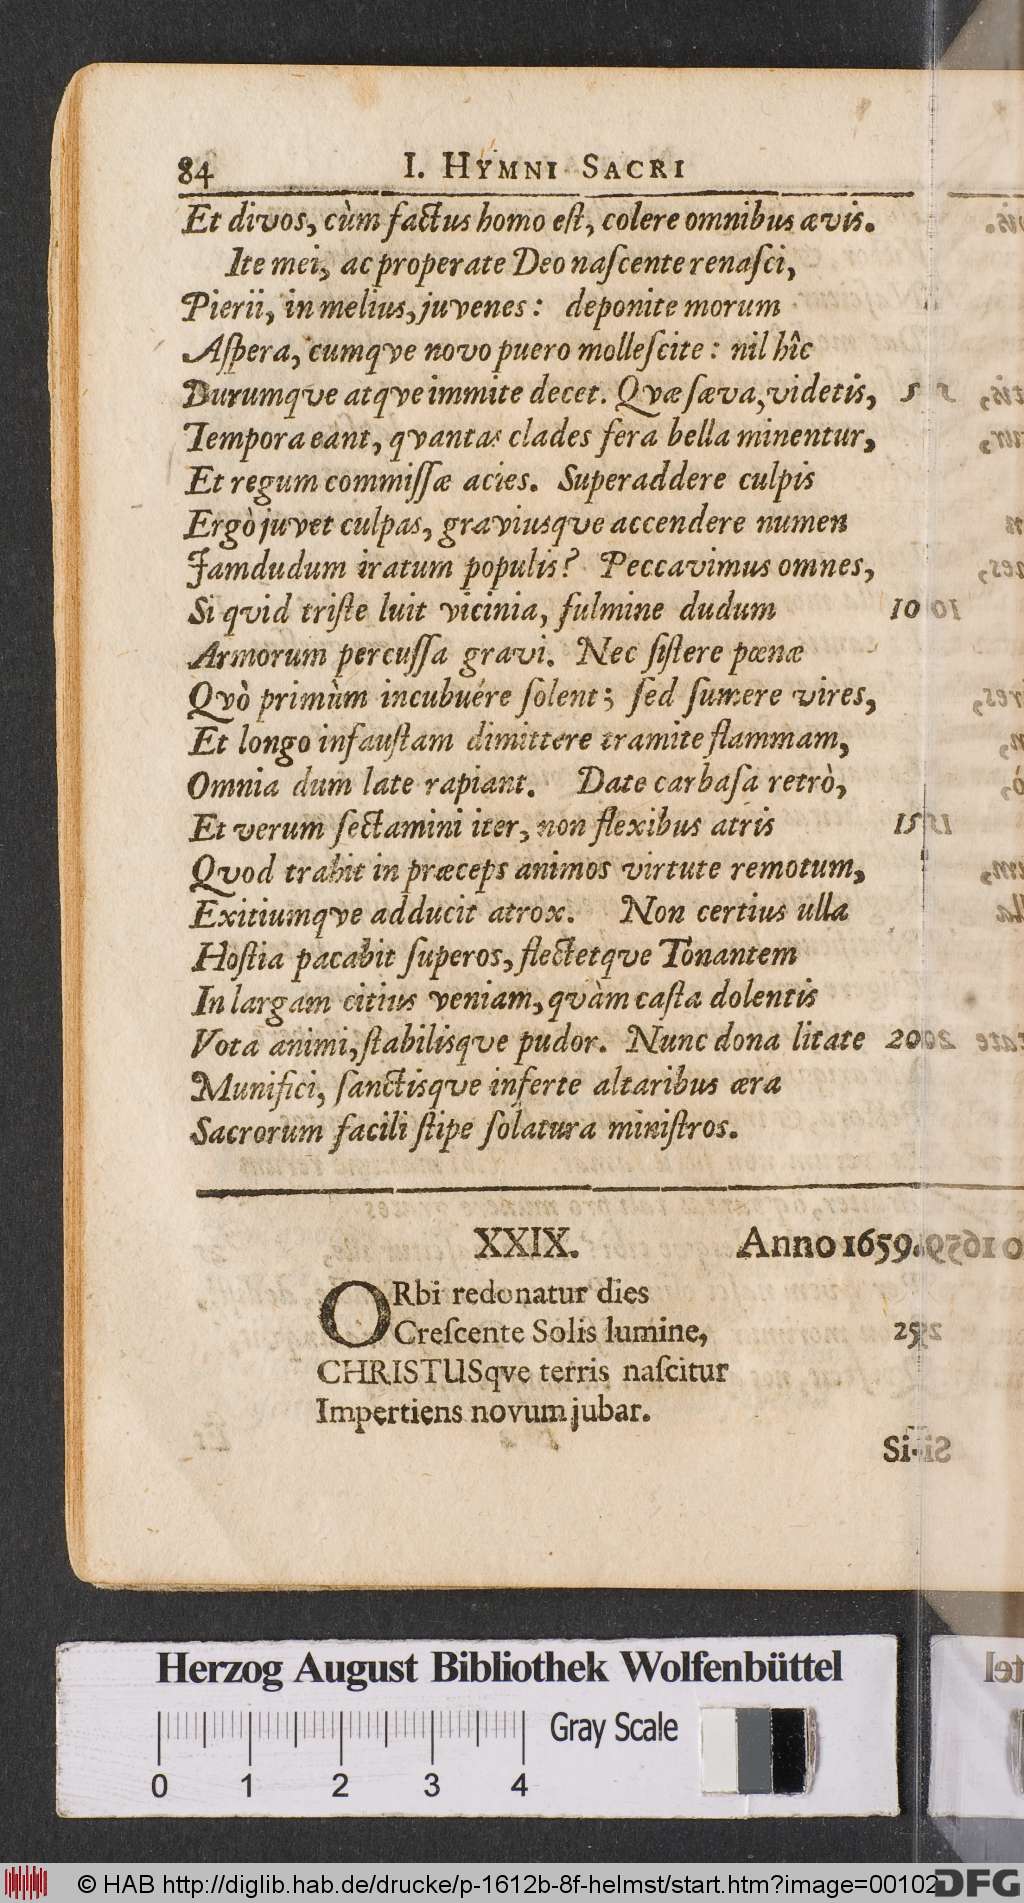 84 I. HYMNI SACRI
Et divos, cùm factus homo eſt, colere omnibus ævis.
Ite mei, ac properate Deo naſcente renaſci,
Pierii, in melius, juvenes: deponite morum
Aſpera, cumqve novo puero molleſcite: nil hîc
Durumqve atqve immite decet. Qvæ ſæva, videtis, 5
Tempora eant, qvantas clades fera bella minentur,
Et regum commiſſæ acies. Superaddere culpis
Ergò juvet culpas, graviusqve accendere numen
Jamdudum iratum populis? Peccavimus omnes,
Si qvid triſte luit vicinia, fulmine dudum 10
Armorum percuſſa gravi. Nec ſiſtere pœnæ
Qvò primùm incubuére ſolent; ſed ſumere vires,
Et longo infauſtam dimittere tramite flammam,
Omnia dum late rapiant. Date carbaſa retrò,
Et verum ſectamini iter, non flexibus atris 15
Qvod trahit in præceps animos virtute remotum,
Exitiumqve adducit atrox. Non certius ulla
Hoſtia pacabit ſuperos, flectetqve Tonantem
In largam citius veniam, qvàm caſta dolentis
Vota animi, ſtabilisqve pudor. Nunc dona litate 20
Munifici, ſanctisqve inferte altaribus æra
Sacrorum facili ſtipe ſolatura miniſtros.
XXIX. Anno 1659.
ORbi redonatur dies
Creſcente Solis lumine, 25
CHRISTUSqve terris naſcitur
Impertiens novum jubar.
Si-
Herzog August Bibliothek Wolfenbüttel
Gray Scale
0 1 2 3 4
© HAB http://diglib.hab.de/drucke/p-1612b-8f-helmst/start.htm?image=00102
DFG